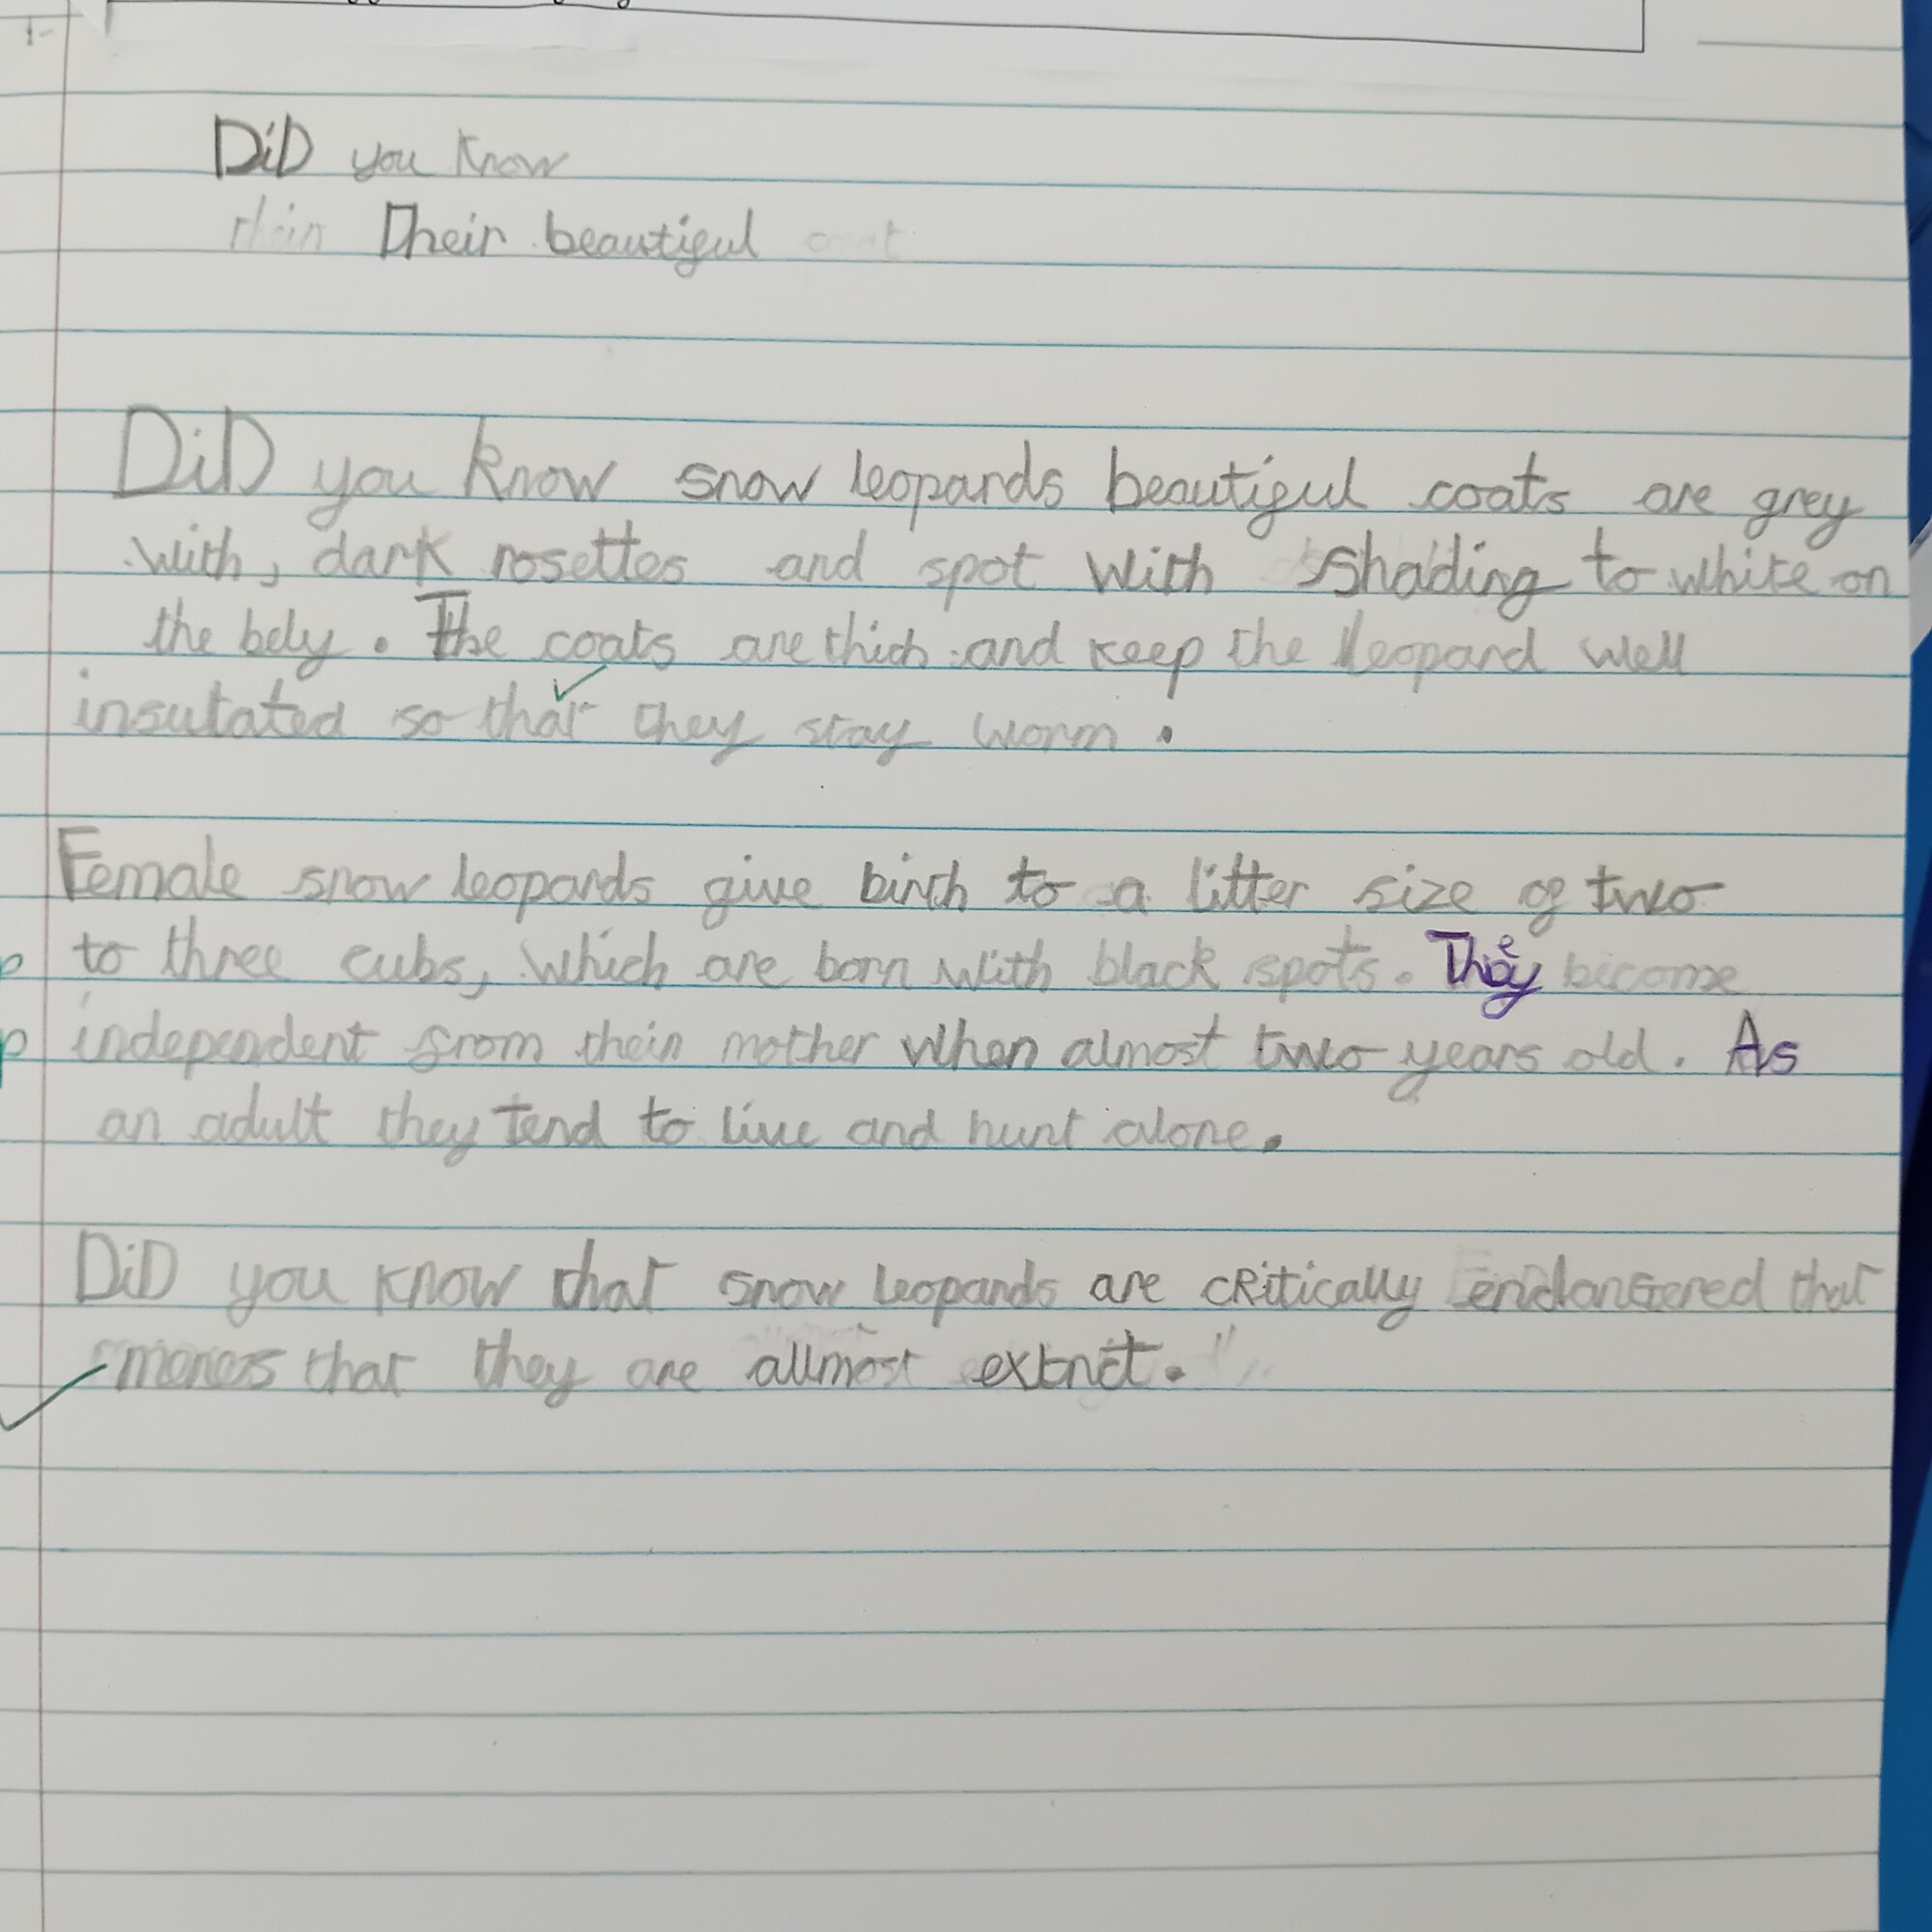 DiD you know
their Their beautiful coat
DiD you know snow leopards beautiful coats are grey
with, dark rosettes and spot with shading to white on
the bely. The coats are thich and keep the leopard well
insulated so that they stay worm.
Female snow leopards give birth to a litter size of two
to three cubs, which are born with black spots. They become
independent from their mother when almost two years old. As
an adult they tend to live and hunt alone.
DiD you know that snow leopards are cRitically endangered that
means that they are allmost extnct.